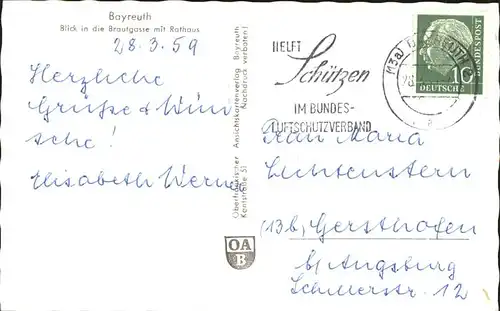 Bayreuth
Blick in die Brautgasse mit Rathaus
28.3.59
Herzliche
Grüße & Wün
sche!
Elisabeth Werner
Oberfränkischer Ansichtskartenverlag Bayreuth
Kantstraße 5 Nachdruck verboten!
OA
B
HELFT
Schützen
IM BUNDES-
LUFTSCHUTZVERBAND
(13a) BAYREUTH
28.
a
10
DEUTSCHE
BUNDESPOST
Frau Maria
Lichtenstern
(13b) Gersthofen
b/ Augsburg
Schillerstr. 12